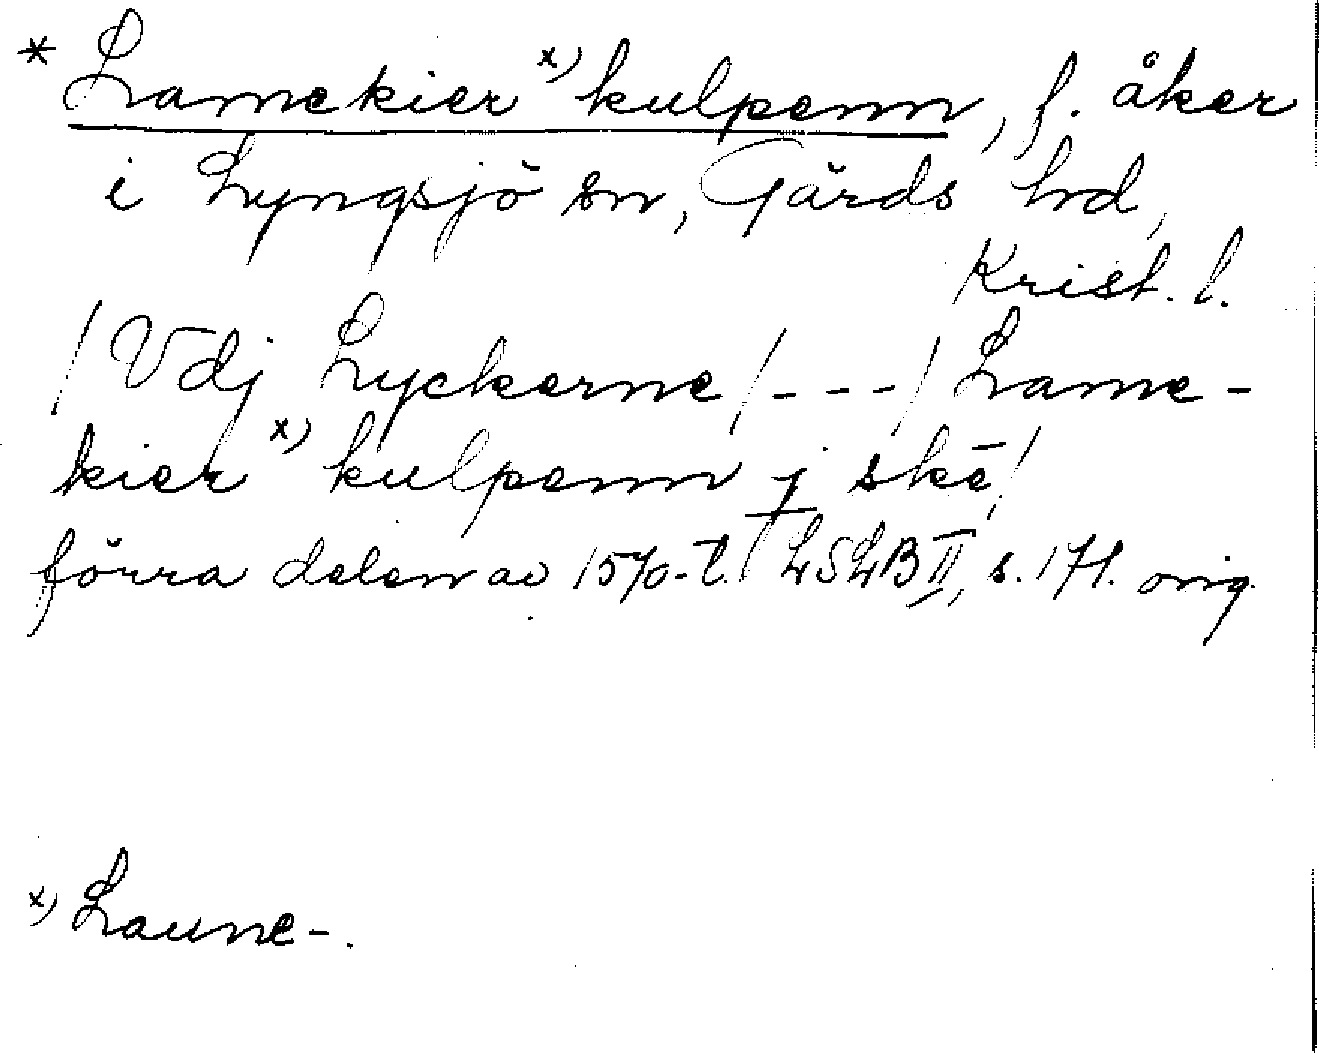 * Lamekier x) kulpenn, f. åker
i Lyngsjö sn, Gärds hd,
Krist. l.
/Vdj Lyckerne/---/Lame-
kier x) kulpenn j skē/
förra delen av 1570-t. LSLB II, s. 171. orig.
x) Laune-.